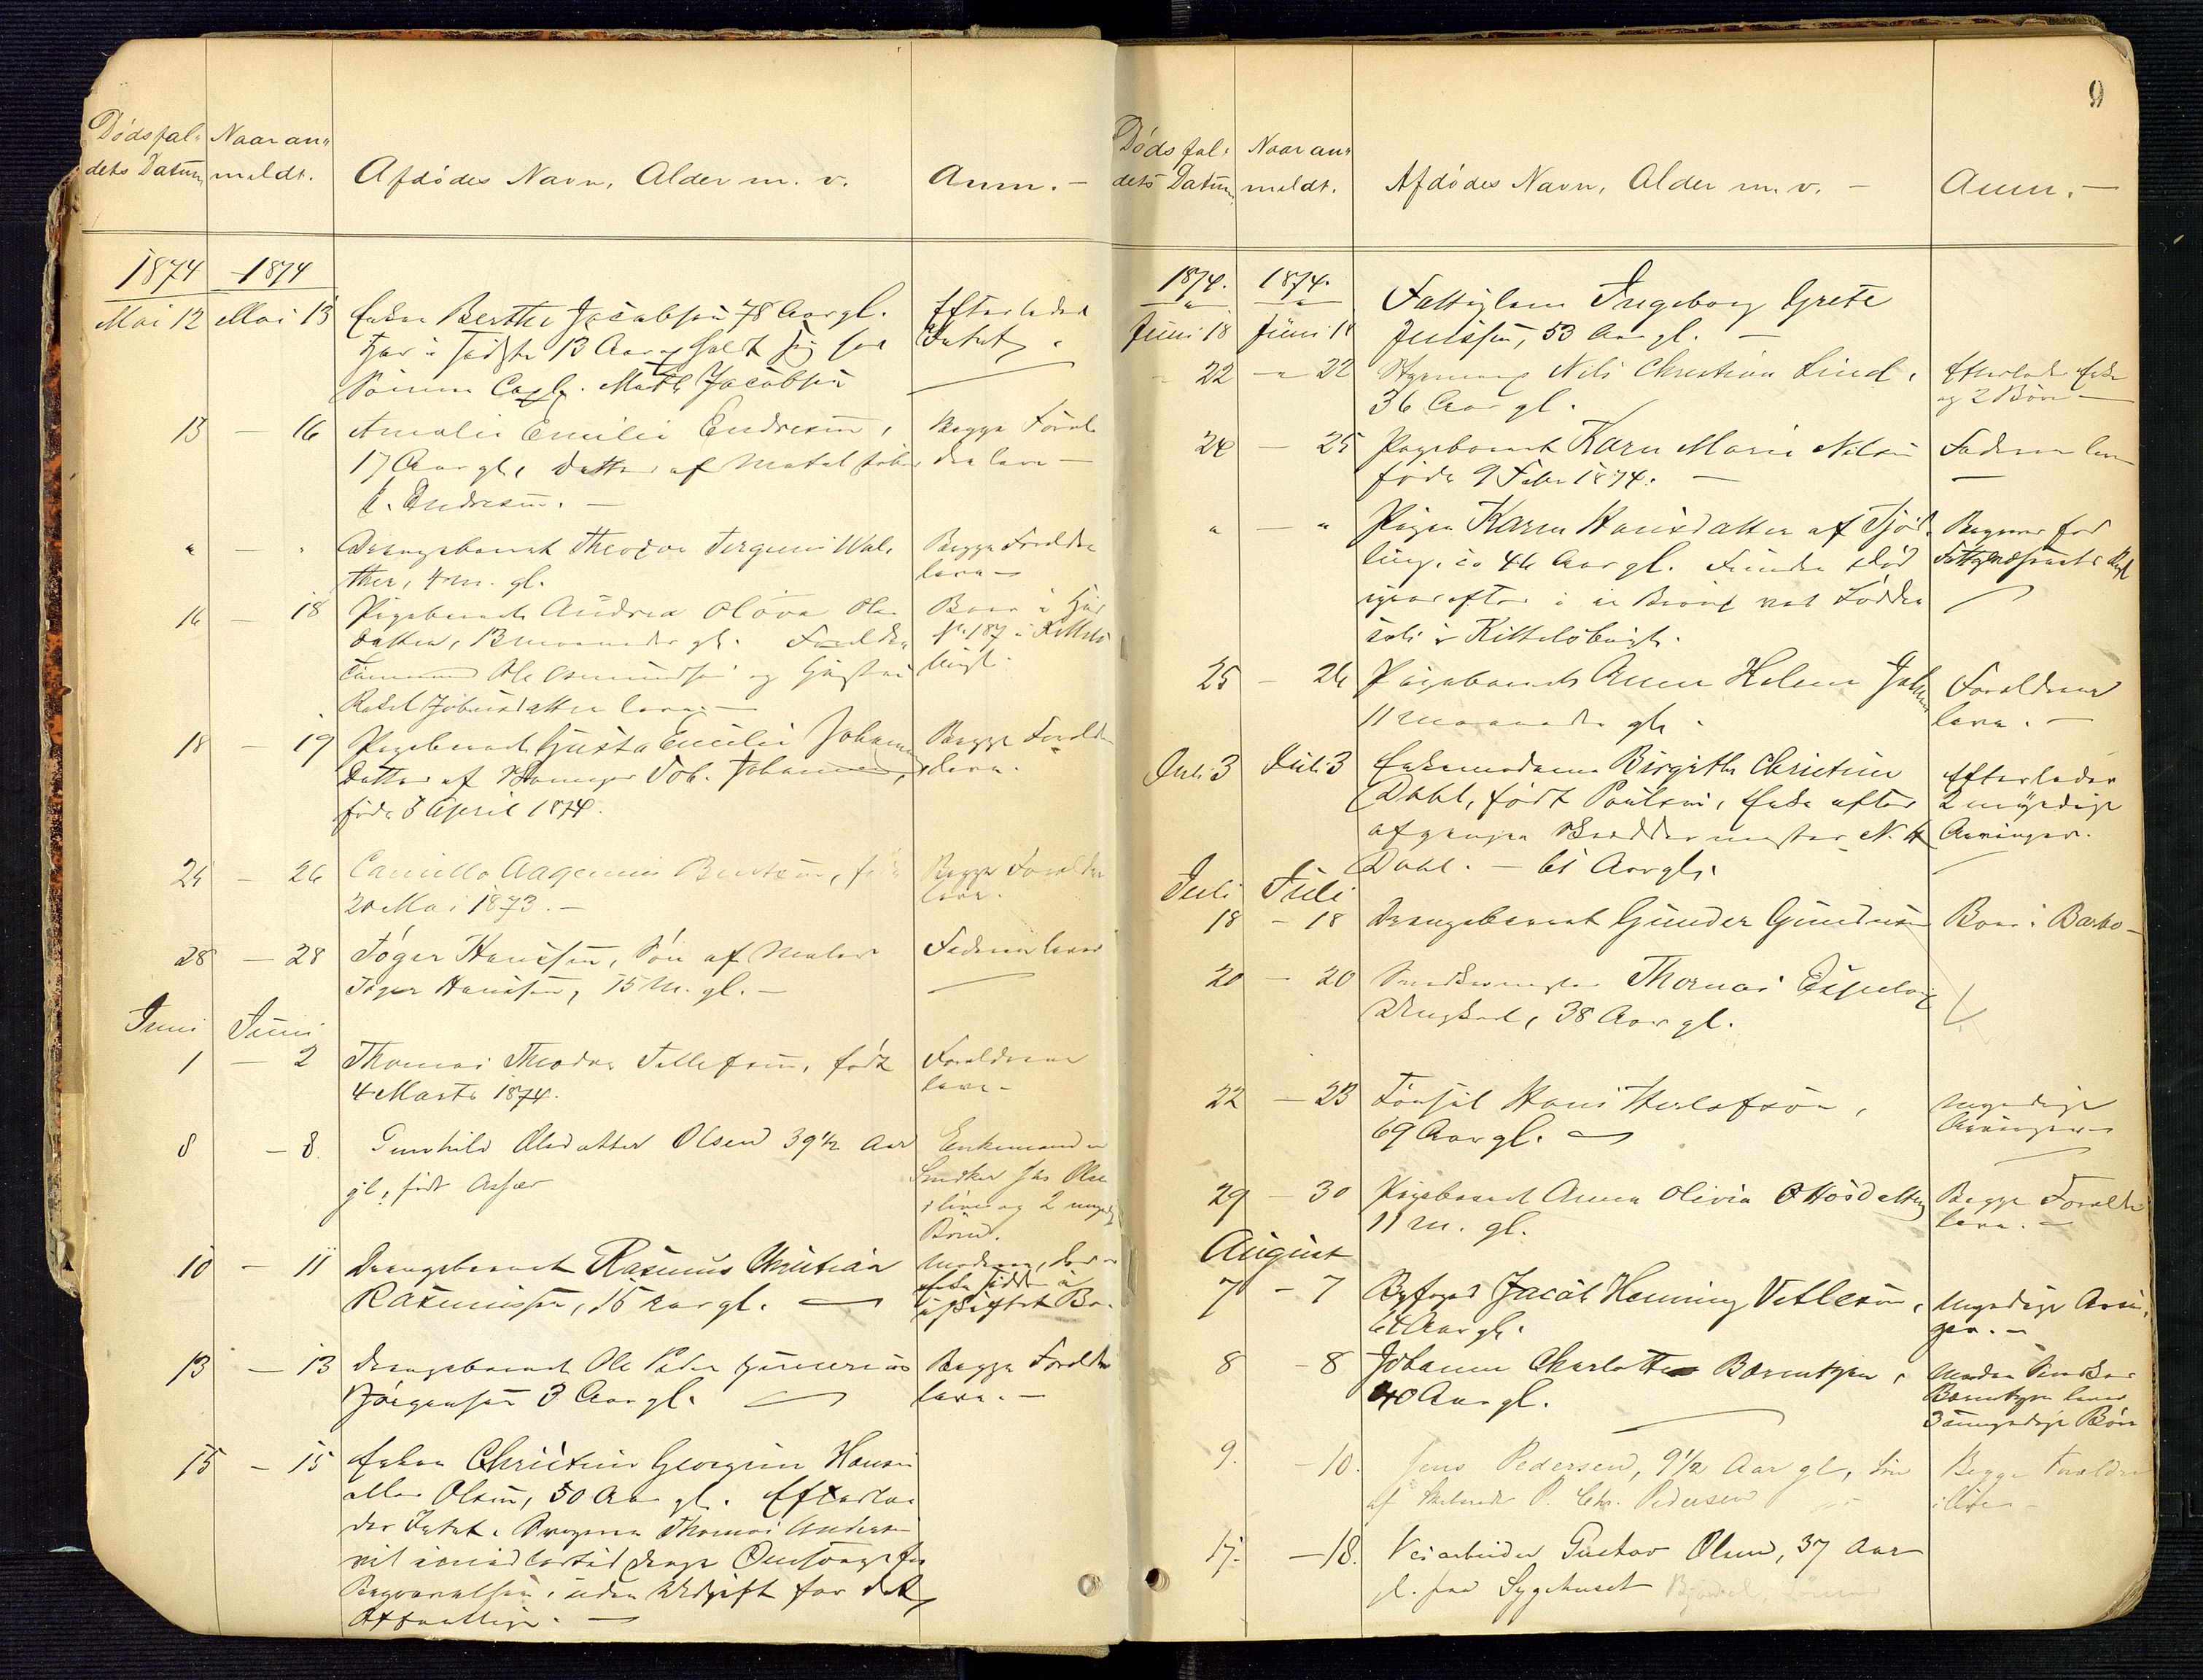 Dødsfal-
dets Datum
Naar an-
meldt.
Afdødes Navn, Alder m. v.
Anm. -
1874
1874
Mai 12
Mai 13
Enken Berthe Jacobsen 78 Aar gl.
har i sidste 13 Aar holdt sig hos
Sønnen Jacobsen
Efterlader
Intet
13 - 16
Amalie Emilie Endresen,
17 Aar gl., Datter af
E. Endresen. -
Begge Foræl-
dre leve -
" - "
Drengebarnet Theodor Jergener Wal-
ther, 4 m. gl.
Begge Forældre
leve -
16 - 18
Pigebarnet Andrea Olava Ols-
datter, 13 maaneder gl. Forældre
Tømmermand Ole Osmundsen og Hustru
Rakel Jobursdatter leve. -
Boer i Hus
No. 187 i Kittels-
bugt.
18 - 19
Pigebarnet Gusta Emilie Johannes
Datter af Tob. Johannesen,
født 3 April 1874.
Begge Forældre
leve.
24 - 26
Camilla Aagemine Berntsen, født
20 Mai 1873. -
Begge Forældre
leve.
28 - 28
Tøger Hanssen, Søn af Maler
Tøger Hanssen, 15 M. gl. -
Faderen lever
Juni
Juni
1 - 2
Thomas Theodor Tellefsen, født
4 Marts 1874.
Forældrene
leve -
8 - 8.
Gunhild Olsdatter Olsen 39 1/2 Aar
gl., født
Enkemanden
Snedker Jns Olsen
i live og 2 umyndige
Børn.
10 - 11
Drengebarnet Rasmus Christian
Rasmussen, 15 Aar gl. -
Moderen, der er
Enke sidder i
uskiftet Bo.
13 - 13
Drengebarnet Ole Peder Gunerius
Jørgensen 3 Aar gl.
Begge Forældre
leve. -
15 - 15
Enken Christine Georgine Hansen
eller Olsen, 50 Aar gl. Efterla-
der Intet. Thomas Andersen
vil imidlertid drage Omsorg for
Begravelsen, uden Udgift for det
Offentlige. -
9
Dødsfal-
dets Datum
Naar an-
meldt.
Afdødes Navn, Alder m. v. -
Anm. -
1874.
1874.
Juni 18
Juni 18
Fattiglem Ingeborg Grete
53 Aar gl. -
22 - 22
Styrmand Nils Christian Lind,
36 Aar gl.
Efterlader Enke
og 2 Børn -
24 - 25
Pigebarnet Karen Marie Nilsen
født 9 Febr 1874. -
Faderen lever
" - "
Pigen Karen Hansdatter af Fjær-
ling, ca 46 Aar gl. Funden død
igaaraftes i en Brønd ved
i Kittelsbugt.
Begraves for
Fattigvæsenets Regn
25 - 26
Pigebarnet Anne Helene
11 maaneder gl.
Forældrene
leve. -
Juli 3
Juli 3
Enkemadame Birgithe Christine
Dahl, født Poulsen, Enke efter
afgangne N. H
Dahl. - 61 Aar gl.
Efterlader
2 myndige
Arvinger.
Juli
Juli
18 - 18
Drengebarnet Gunder Gundersen
Boer i Barbo -
20 - 20
Snedkermester Thomas
38 Aar gl.
22 - 23
Fonsul Hans Herlofson,
69 Aar gl. -
Myndige
Arvinger
29 - 30
Pigebarnet Anna Olivia Ottosdatter
11 m. gl.
Begge Forældre
leve. -
August
7 - 7
Byfoged Jacob Henning Vetlesen,
64 Aar gl.
Myndige Arvin-
ger. -
8 - 8
Johanne Charlotte Berentzen,
40 Aar gl.
Manden Snedker
Berentzen lever
3 umyndige Børn
9. - 10.
Jens Pedersen, 9 1/2 Aar gl., Søn
af P. Chr. Pedersen
Begge Forældre
ilive -
17. - 18.
Veiarbeider Gustav Olsen, 37 Aar
gl. paa Sygehuset